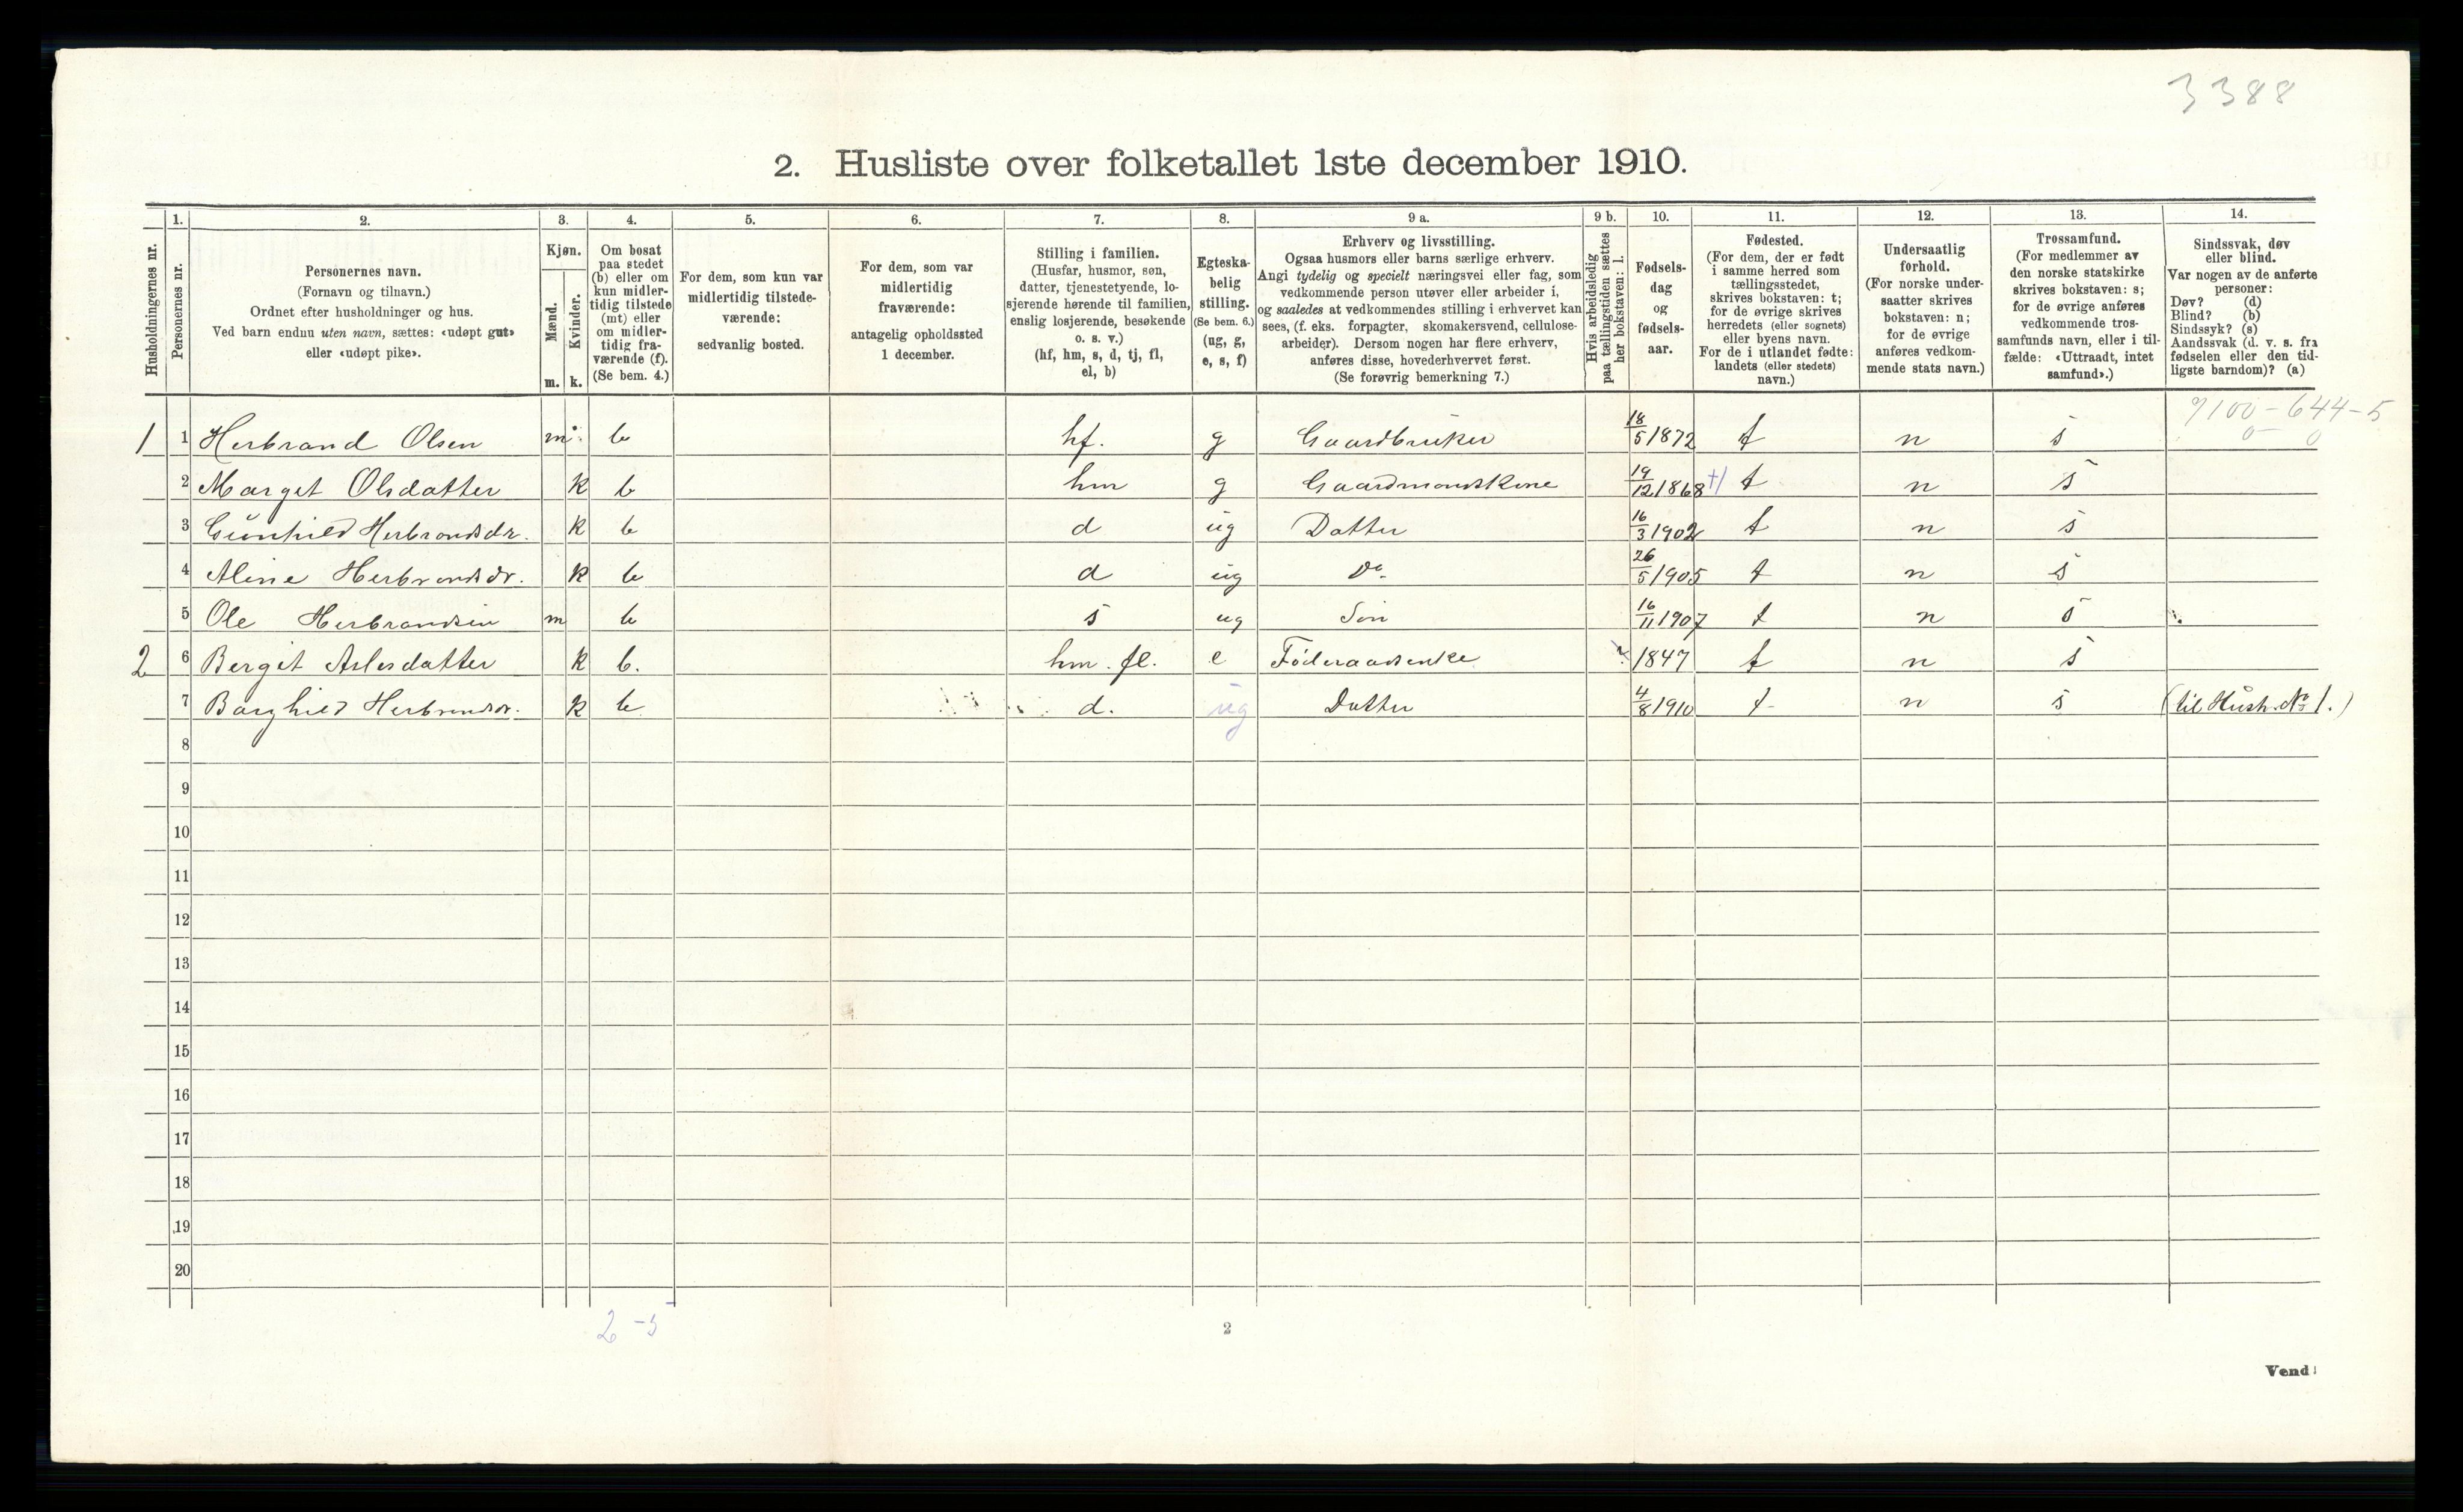 3388
2. Husliste over folketallet 1ste december 1910.
Husholdningernes nr.
1.
Personernes nr.
2.
Personernes navn.
(Fornavn og tilnavn.)
Ordnet efter husholdninger og hus.
Ved barn endnu uten navn, sættes: «udøpt gut»
eller «udøpt pike».
3.
Kjøn.
Mænd.
Kvinder.
m. k.
4.
Om bosat
paa stedet
(b) eller om
kun midler-
tidig tilstede
(mt) eller
om midler-
tidig fra-
værende (f).
(Se bem. 4.)
5.
For dem, som kun var
midlertidig tilstede-
værende:
sedvanlig bosted.
6.
For dem, som var
midlertidig
fraværende:
antagelig opholdssted
1 december.
7.
Stilling i familien.
(Husfar, husmor, søn,
datter, tjenestetyende, lo-
sjerende hørende til familien,
enslig losjerende, besøkende
o. s. v.)
(hf, hm, s, d, tj, fl,
el, b)
8.
Egteska-
belig
stilling.
(Se bem. 6.)
(ug, g,
e, s, f)
9 a.
Erhverv og livsstilling.
Ogsaa husmors eller barns særlige erhverv.
Angi tydelig og specielt næringsvei eller fag, som
vedkommende person utøver eller arbeider i,
og saaledes at vedkommendes stilling i erhvervet kan
sees, (f. eks. forpagter, skomakersvend, cellulose-
arbeider). Dersom nogen har flere erhverv,
anføres disse, hovederhvervet først.
(Se forøvrig bemerkning 7.)
9 b.
Hvis arbeidsledig
paa tællingstiden sættes
her bokstaven: l.
10.
Fødsels-
dag
og
fødsels-
aar.
11.
Fødested.
(For dem, der er født
i samme herred som
tællingsstedet,
skrives bokstaven: t;
for de øvrige skrives
herredets (eller sognets)
eller byens navn.
For de i utlandet fødte:
landets (eller stedets)
navn.)
12.
Undersaatlig
forhold.
(For norske under-
saatter skrives
bokstaven: n;
for de øvrige
anføres vedkom-
mende stats navn.)
13.
Trossamfund.
(For medlemmer av
den norske statskirke
skrives bokstaven: s;
for de øvrige anføres
vedkommende tros-
samfunds navn, eller i til-
fælde: «Uttraadt, intet
samfund».)
14.
Sindssvak, døv
eller blind.
Var nogen av de anførte
personer:
Døv? (d)
Blind? (b)
Sindssyk? (s)
Aandssvak (d. v. s. fra
fødselen eller den tid-
ligste barndom)? (a)
9100-644-5
0 0
1 1 Herbrand Olsen m. b hf. g Gaardbruker 18/5 1872 t n s
2 Marget Olsdatter k b hm g Gaardmandskone 19/12 1868 t n s
3 Gunhild Herbrandsdr. k b d ug Datter 16/3 1902 t n s
4 Aline Herbrandsdr. k b d ug Do 26/5 1905 t n s
5 Ole Herbrandsen m b s ug Søn 16/11 1907 t n s
2 6 Berget Aslesdatter k b. hm. fl. e Føderaadsenke 1847 t n s
7 Barghild Herbrandsdr. k b d. ug Datter 4/8 1910 t n s (til Hush. No 1.)
8
9
10
11
12
13
14
15
16
17
18
19
20
2 - 5
2
Vend!